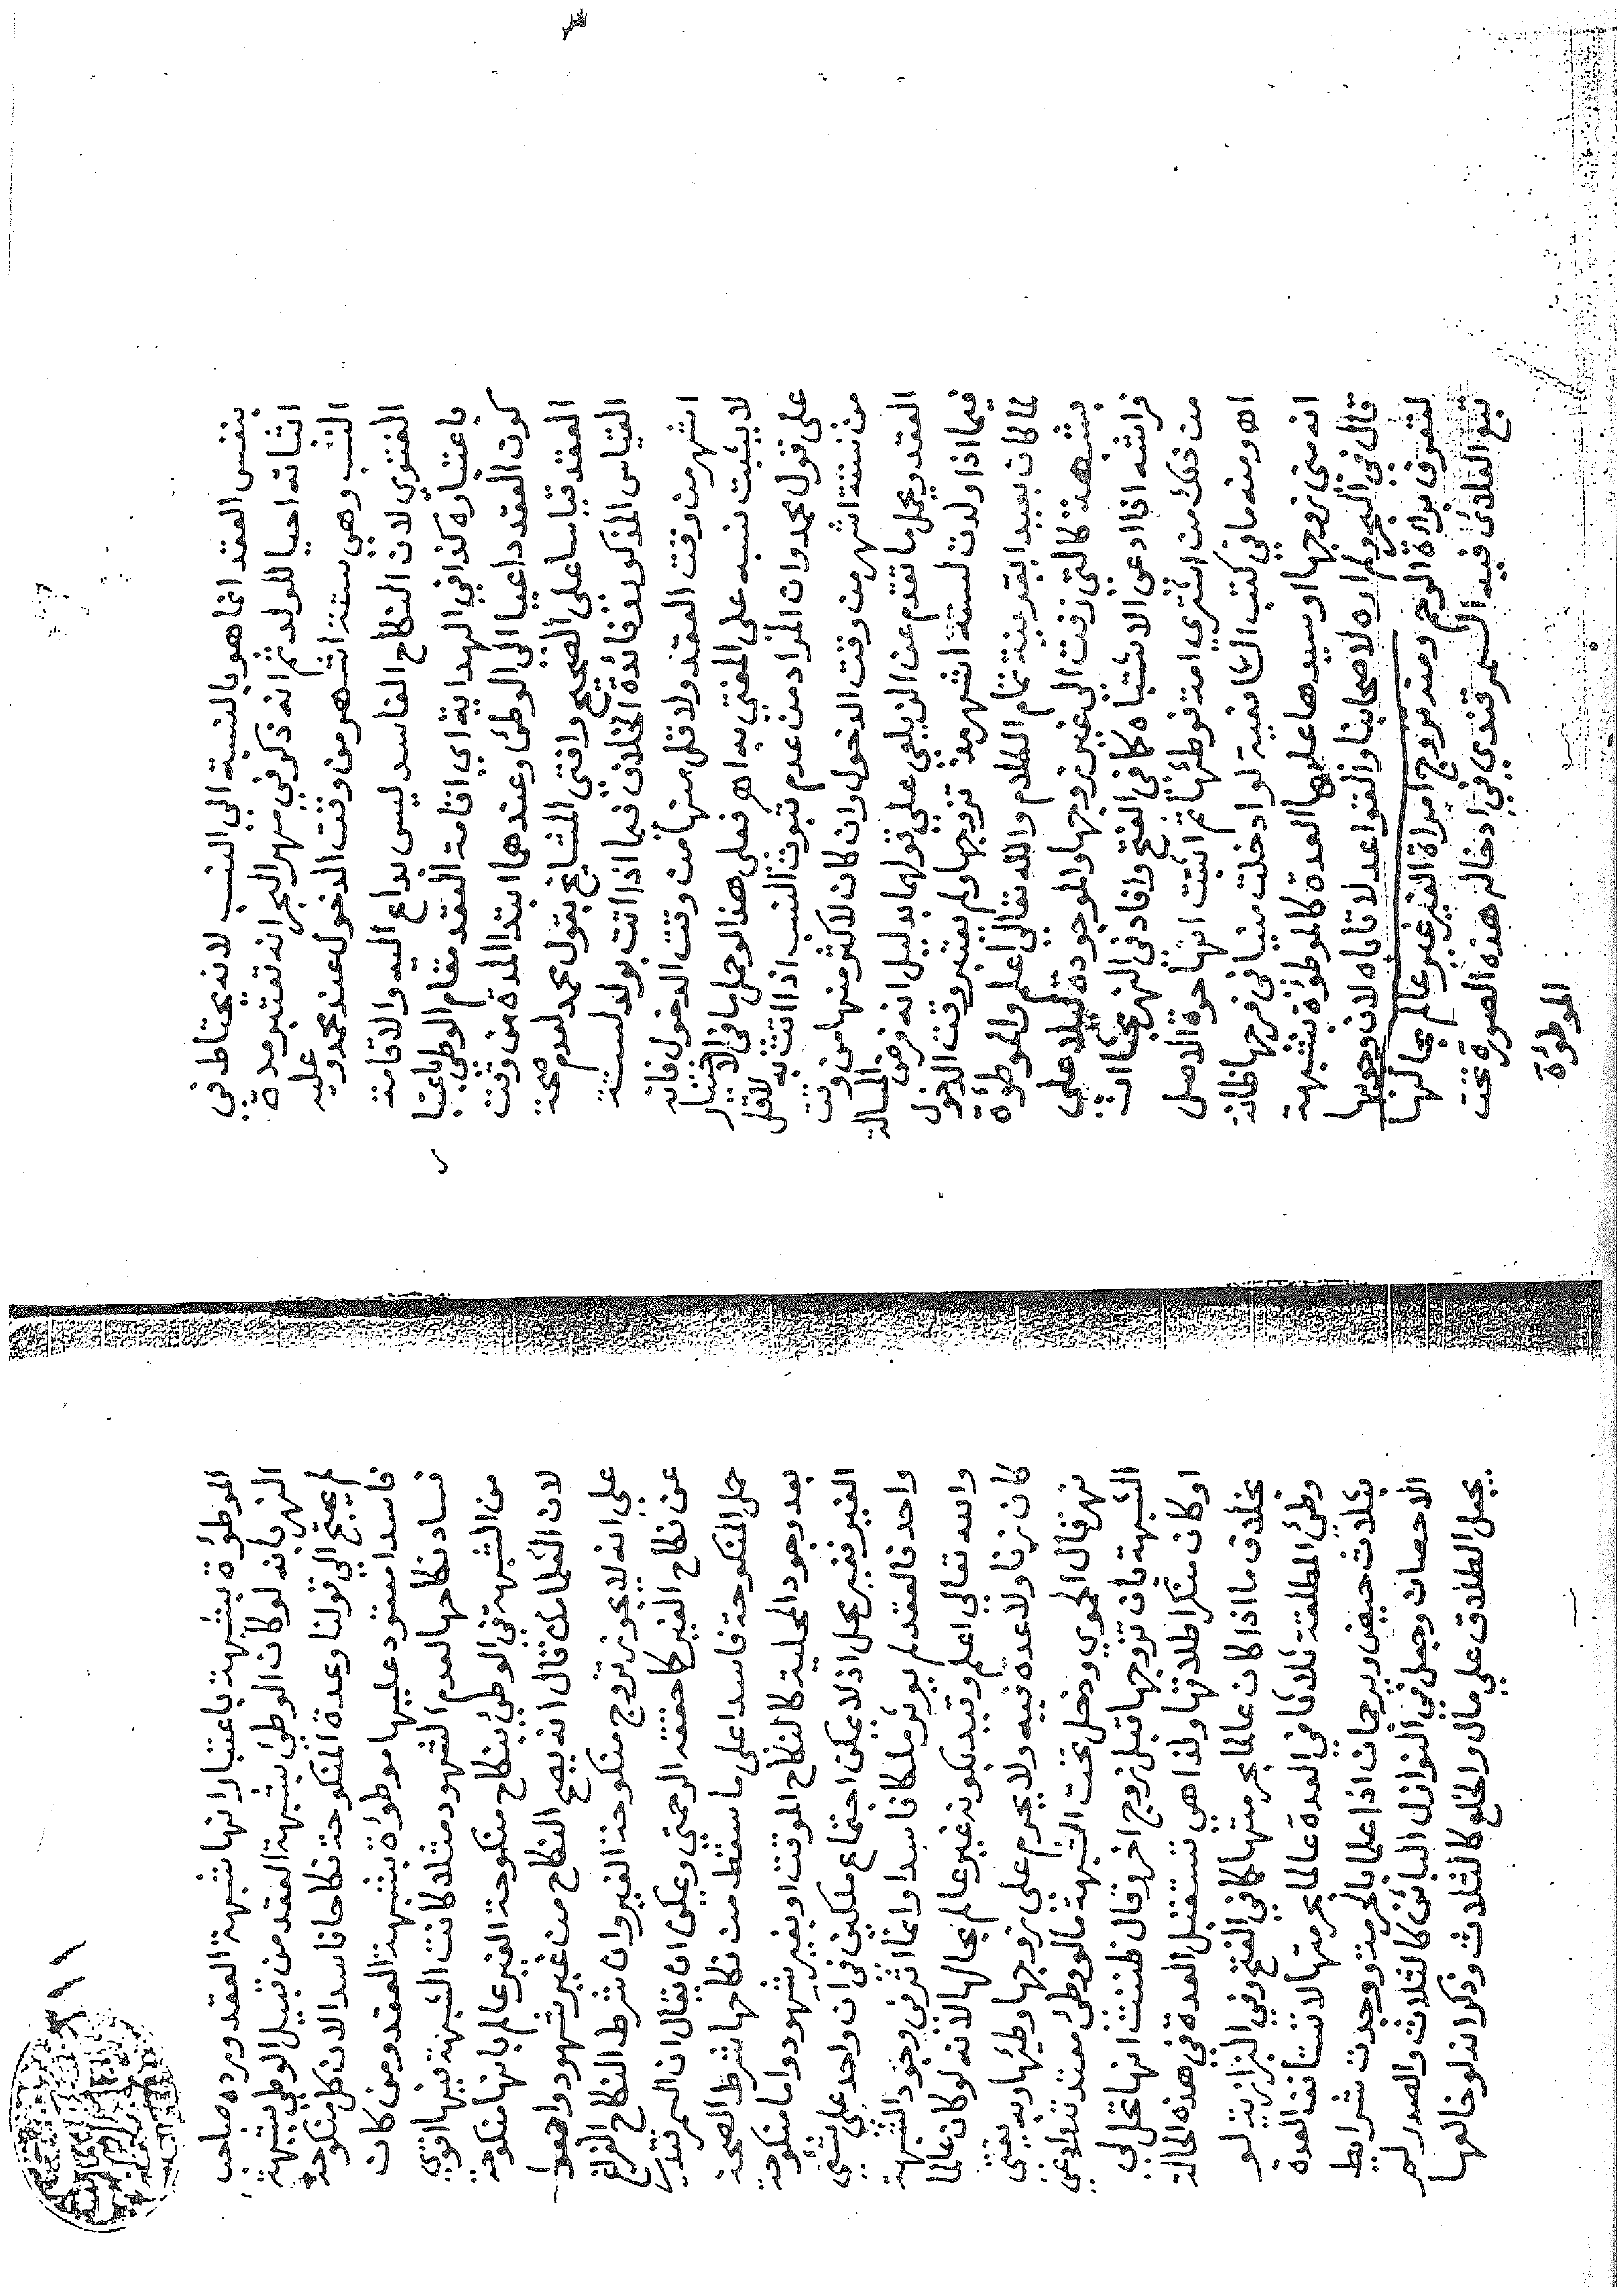 بنفس العقد انما هو بالنسبة الي النسب لانه يحتاط في
اثباته احيا للولد ثم انه ذكر في مهر البحر انه تعتبر مدة
النسب وهي ستة اشهر من وقت الدخول عند محمد وعليه
الفتوي لان النكاح الفاسد ليس بداع اليه والاقامة
باعتباره كذا في الهداية اي اقامة العقد مقام الوطي باعتبا
كون العقد داعيا الي الوطئ وعندهما ابتدا المدة من وقت
العقد قياسا على الصحيح وافتي المشايخ بقول محمد لعدم صحة
القياس المذكور ففائدة الخلاف فيما اذا اتت بولد لستة
اشهر من وقت العقد ولاقل منها من وقت الدخول فانه
لا يثبت نسبه على المفتي به اهر فعلي هذا لو حمل ما في الاختيار
على قول محمد وان المراد من عدم ثبوت النسب اذا اتت به لاقل
من ستة اشهر من وقت الدخول وان كان لاكثر منها من وقت
العقد ويحمل ما تقدم عن الزيلعي علي قولهما بدليل انه فرض المسالة
فيما اذا ولدت لستة اشهر منذ تزوجها ولم يعتبر وقت الدخول
لما كان بعيدا بقرينة تمام الكلام والله تعالي اعلم والموطوة
بشبهة كالتي زفت الي غير زوجها والموجودة ليلا علي
فراشه اذا ادعي الاشتباه كما في الفتح وافاد في النهر بحثا ان
من ذلك من اشتري امة فوطئها ثم اثبت انها حرة الاصل
اه ومنه ما في كتب الشافعية لو ادخلت منيا في فرجها ظانة
انه مني زوجها او سيدها عليها العدة كالموطؤة بشبهة
قال في البحر ولم اره لاصحابنا والقواعد لا تاباه لان وجوبها
لتعرف براة الرحم ومنه تزوج امراة الغير غير عالم بحالها
تبع العلائي فيه السمرقندي في ادخاله هذه الصورة تحت
الموطؤة
الموطؤة بشبهة باعتبار انها شبهة العقد ورده صاحب
النهر بانه لو كان الوطئ بشبهة العقد من قبيل الوطي بشبهة
لم يحتج الي قولنا وعدة المنكوحة نكاحا فاسدا لان كل منكوحة
فاسدا معقود عليها موطؤة بشبهة العقد ومن كان
فساد نكاحها لعدم الشهود مثلا كانت الشبهة فيها اقوي
من الشبهة في الوطئ بنكاح منكوحة الغير عالم بانها منكوحة
لان العلما من قال انه يصح النكاح من غير شهود واجمعوا
علي انه لا يجوز تزوج منكوحة الغير وان شرط النكاح الفراغ
عن نكاح الغير كما حققه الرحمتي ويمكن ان يقال ان السمرقندي
حمل المنكوحة فاسدا على ما سقط من نكاحها شرط الصحة
بعد وجود المحلية كالنكاح الموقت او بغير شهود واما منكوحة
الغير فغير محل اذ لا يمكن اجتماع ملكين في ان واحد علي شئي
واحد فالعقد لم يوثر ملكا فاسدا وانما اثر في وجود الشبهة
والله تعالي اعلم وقيد بكونه غير عالم بحالها لانه لو كان عالما
كان زنا ولا عدة فيه ولا يحرم على زوجها وطئها وبه يفتي
نهر قال الحموي ودخل تحت الشبهة ما لو وطئ معتدته لادعي
الشبهة بان تزوجها قبل زوج اخر وقال ظننت انها تحل لي
او كان منكرا طلاقها ولذا هي تستقبل العدة في هذه الحالة
بخلاف ما اذا كان عالما بحرمتها كما في الفتح وفي البزازية لو
وطئ المطلقة ثلاثا في العدة عالما بحرمتها لا تستانف العدة
بثلاث حيض ويرجمان اذا علما بالحرمة ووجدت شرايط
الاحصان وجعل في النوازل البائن كالثلاث والصدر لم
يجعل الطلاق علي مال والخلع كالثلاث وذكر انه لو خالعها